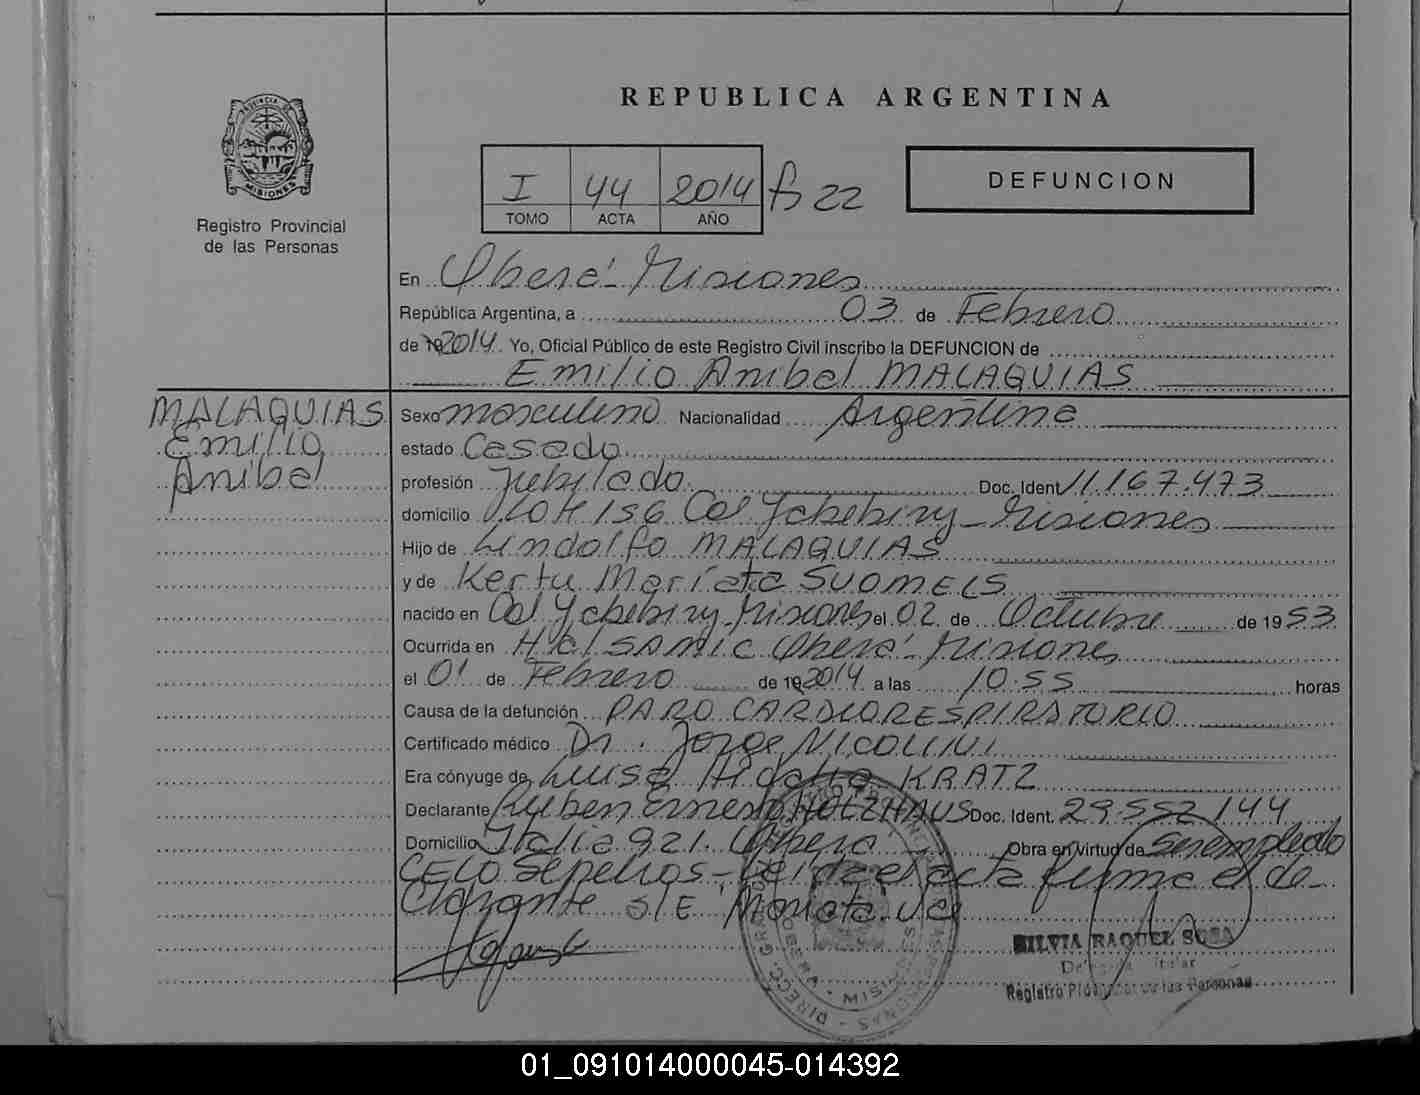 REPUBLICA ARGENTINA
PROVINCIA DE
MISIONES
Registro Provincial
de las Personas
I 44 2014 fº 22
TOMO ACTA AÑO
DEFUNCION
En Oberá - Misiones
República Argentina, a 03 de Febrero
de 192014 Yo, Oficial Público de este Registro Civil inscribo la DEFUNCION de
Emilio Anibal MALAQUIAS
MALAQUIAS
Emilio
Anibal
Sexo masculino Nacionalidad Argentina
estado Casado
profesión Jubilado Doc. Ident 11.167.473
domicilio Lote 156 Col Yabebiry - Misiones
Hijo de Lindolfo MALAQUIAS
y de Kertu Marieta SUOMELS
nacido en Col Yabebiry Misiones el 02 de Octubre de 1953
Ocurrida en Htal SAMIC Oberá - Misiones
el 01 de Febrero de 192014 a las 10:55 horas
Causa de la defunción PARO CARDIORESPIRATORIO
Certificado médico Dr. Jorge NICOLINI
Era cónyuge de Luisa Hidalia KRATZ
Declarante Ruben Ernesto HOLZHAUS Doc. Ident. 29.552.144
Domicilio Italia 921. Oberá Obra en virtud de ser empleado
CELO Sepelios - Leida el acta firma el de
clarante S/E Monota. Val
SILVIA RAQUEL SOSA
Delegada Titular
Registro Provincial de las Personas
OBERA - MISIONES
01_091014000045-014392